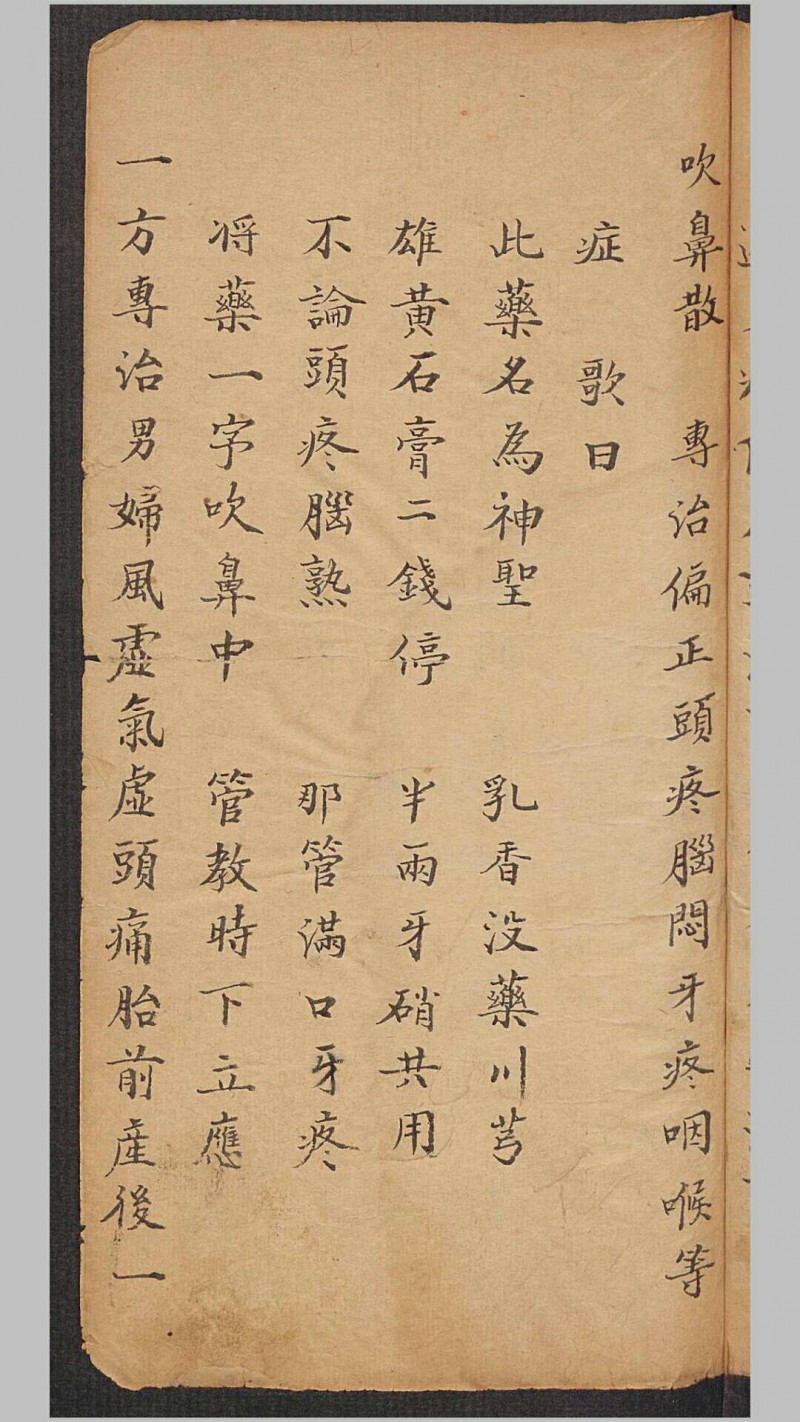 吹鼻散　專治偏正頭疼腦悶牙疼咽喉等
症　歌曰
此藥名為神聖　乳香没藥川芎
雄黃石膏二錢停　半兩牙硝共用
不論頭疼腦熱　那管滿口牙疼
将藥一字吹鼻中　管教時下立應
一方專治男婦風虛氣虛頭痛胎前產後一